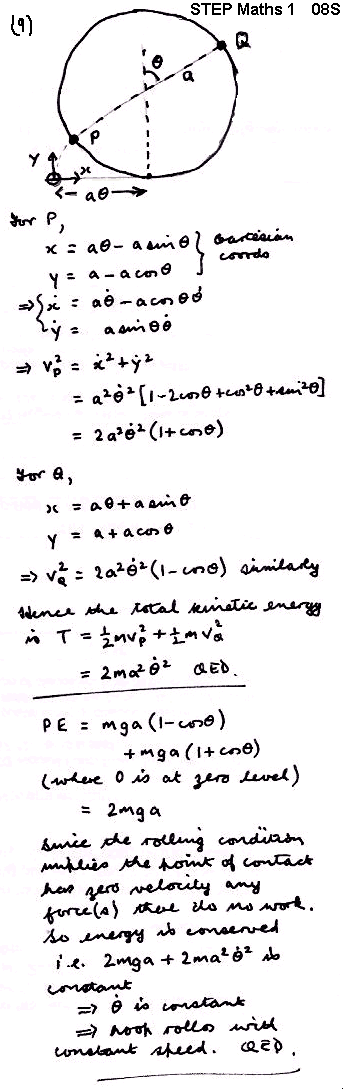 STEP Maths 1 08S
(9)
Q
θ
a
P
Y
x
0
← aθ →
For P,
x = aθ - a sinθ } Cartesian
y = a - a cosθ } coords
⇒ { ẋ = aθ̇ - a cosθ θ̇
{ ẏ = a sinθ θ̇
⇒ v_P² = ẋ² + ẏ²
= a²θ̇² [1 - 2cosθ + cos²θ + sin²θ]
= 2a²θ̇² (1 + cosθ)
For Q,
x = aθ + a sinθ
y = a + a cosθ
⇒ v_Q² = 2a²θ̇² (1 - cosθ) similarly
Hence the total kinetic energy
is T = ½mv_P² + ½mv_Q²
= 2ma²θ̇² QED.
PE = mga (1 - cosθ)
+ mga (1 + cosθ)
(where 0 is at zero level)
= 2mga
Since the rolling condition
implies the point of contact
has zero velocity any
force(s) there do no work.
So energy is conserved
i.e. 2mga + 2ma²θ̇² is
constant
⇒ θ̇ is constant
⇒ hoop rolls with
constant speed. QED.